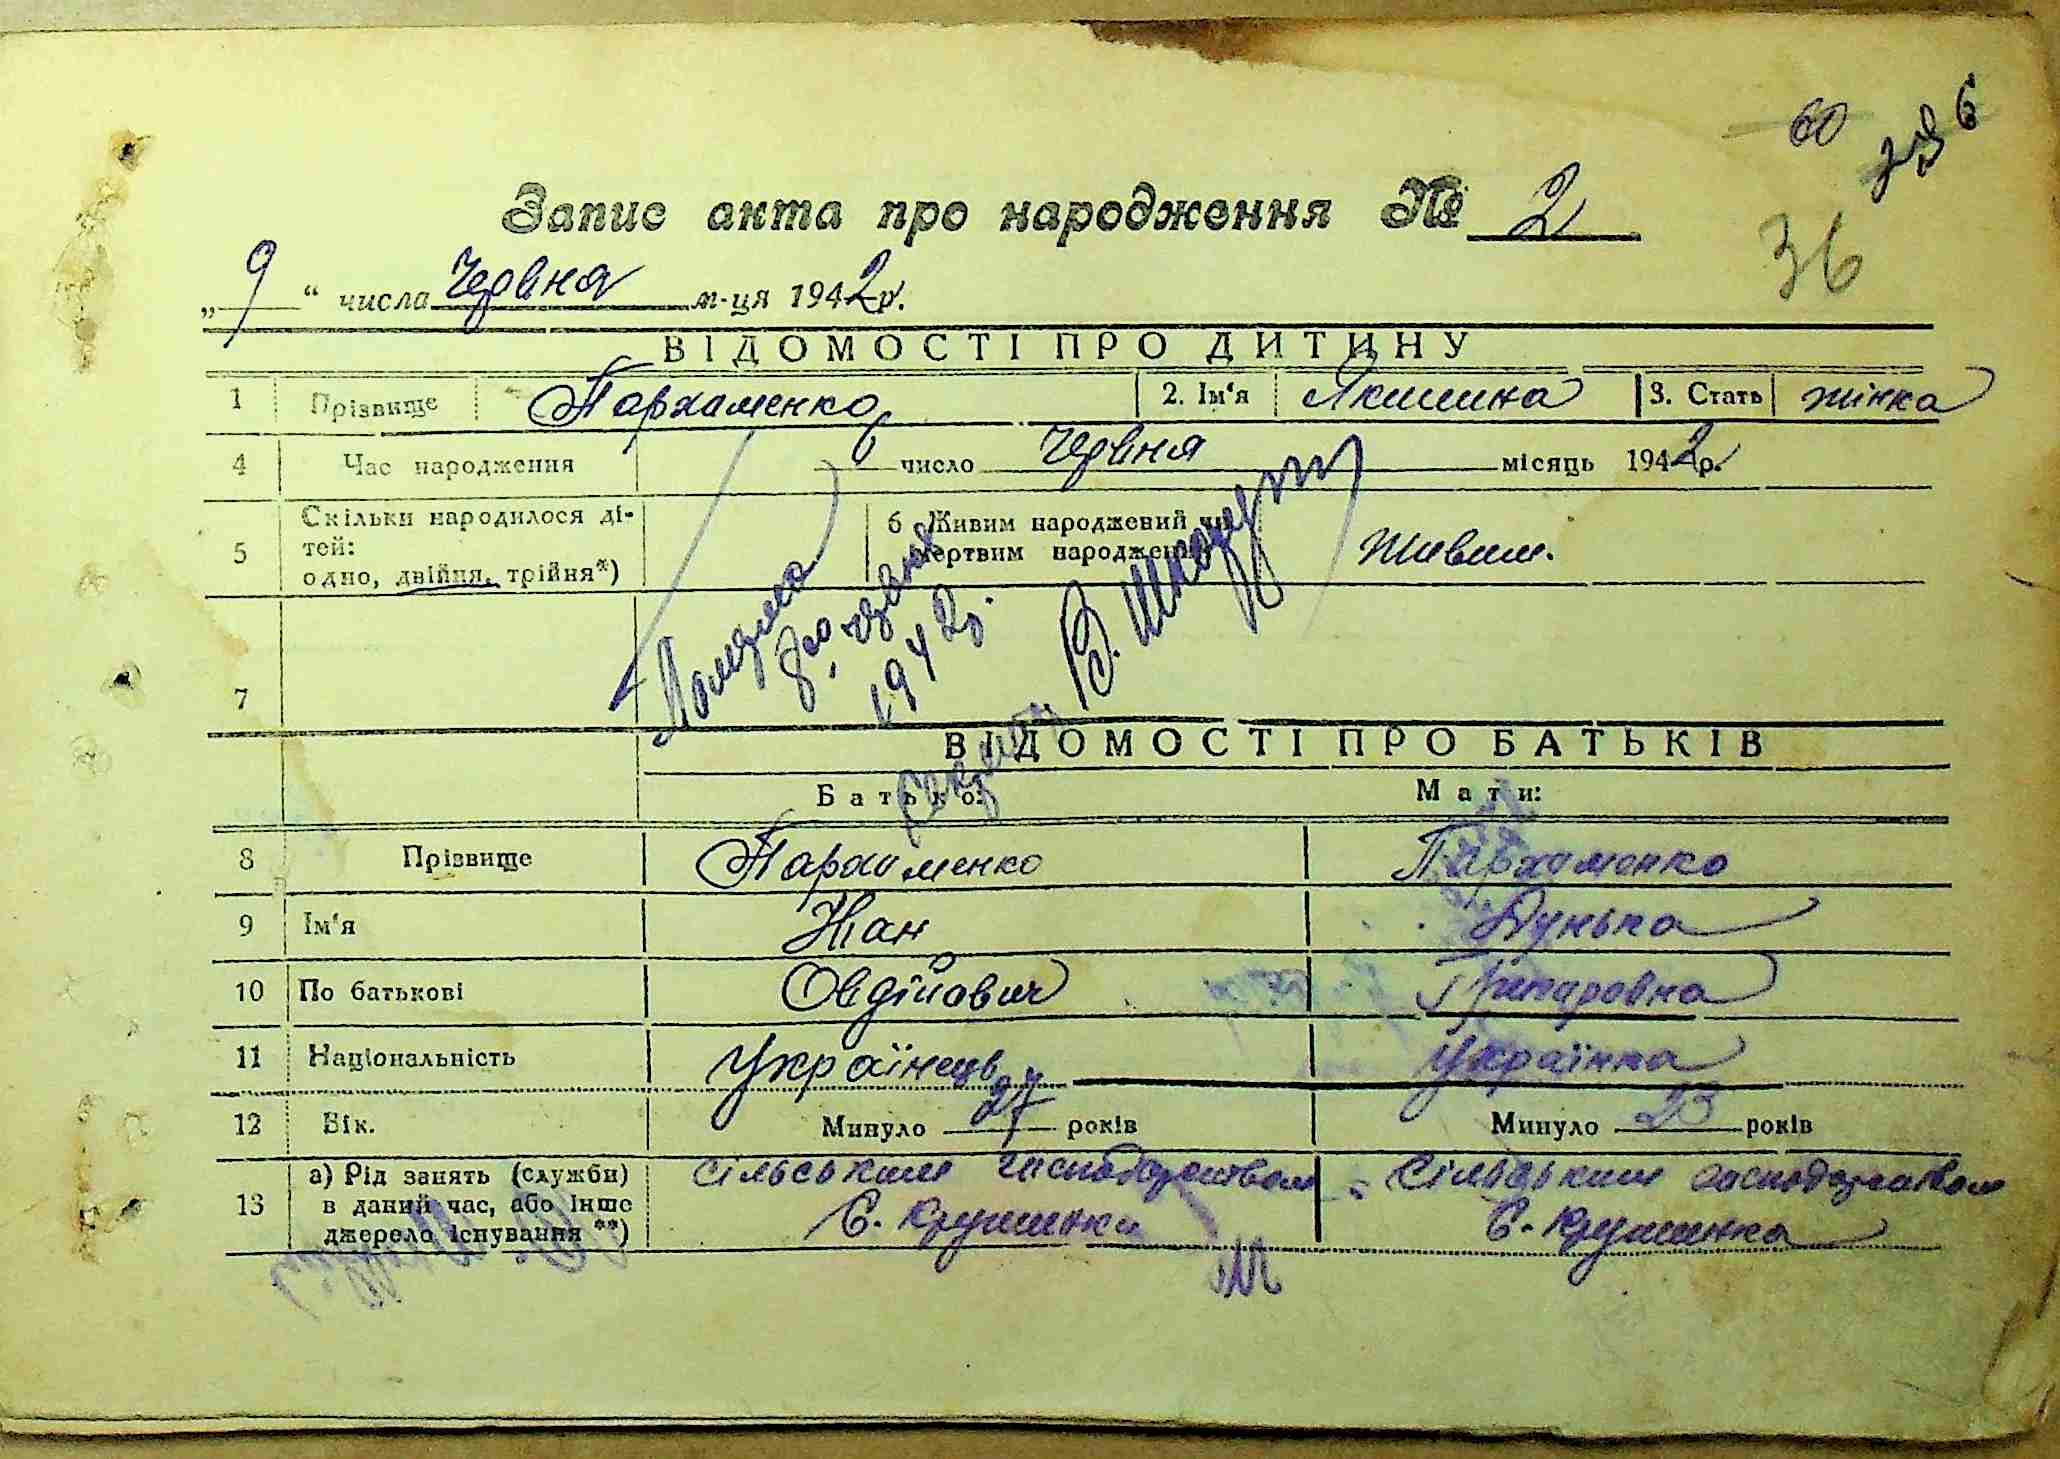 60
36
Запис акта про народження № 2
„ 9 “ числа Червня м-ця 1942 р.
ВІДОМОСТІ ПРО ДИТИНУ
1 Прізвище Пархаменко 2. Ім‘я Якилина 3. Стать жінка
4 Час народження 6 число Червня місяць 1942 р.
5 Скільки народилося ді-
тей:
одно, двійня, трійня*)
6 Живим народжений чи
мертвим народжений
Живим.
7
Померла
1942 р.
Секретар В.
ВІДОМОСТІ ПРО БАТЬКІВ
Батько: Мати:
8 Прізвище Пархоменко Пархоменко
9 Ім‘я Іван Дунька
10 По батькові Овдійович
11 Національність Українець Українка
12 Вік. Минуло 27 років Минуло 23 років
13 а) Рід занять (служби)
в даний час, або інше
джерело існування **)
сільським господарством
с. Крушинка
сільським господарством
с. Крушинка